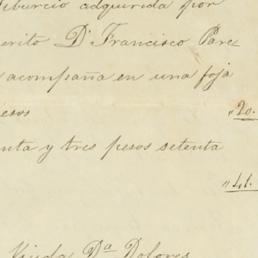 iburcio adquirida por
erito Dn Francisco Pare
acompaña en una foja
esos "20.
nta y tres pesos setenta
"41.
Viuda Da Dolores